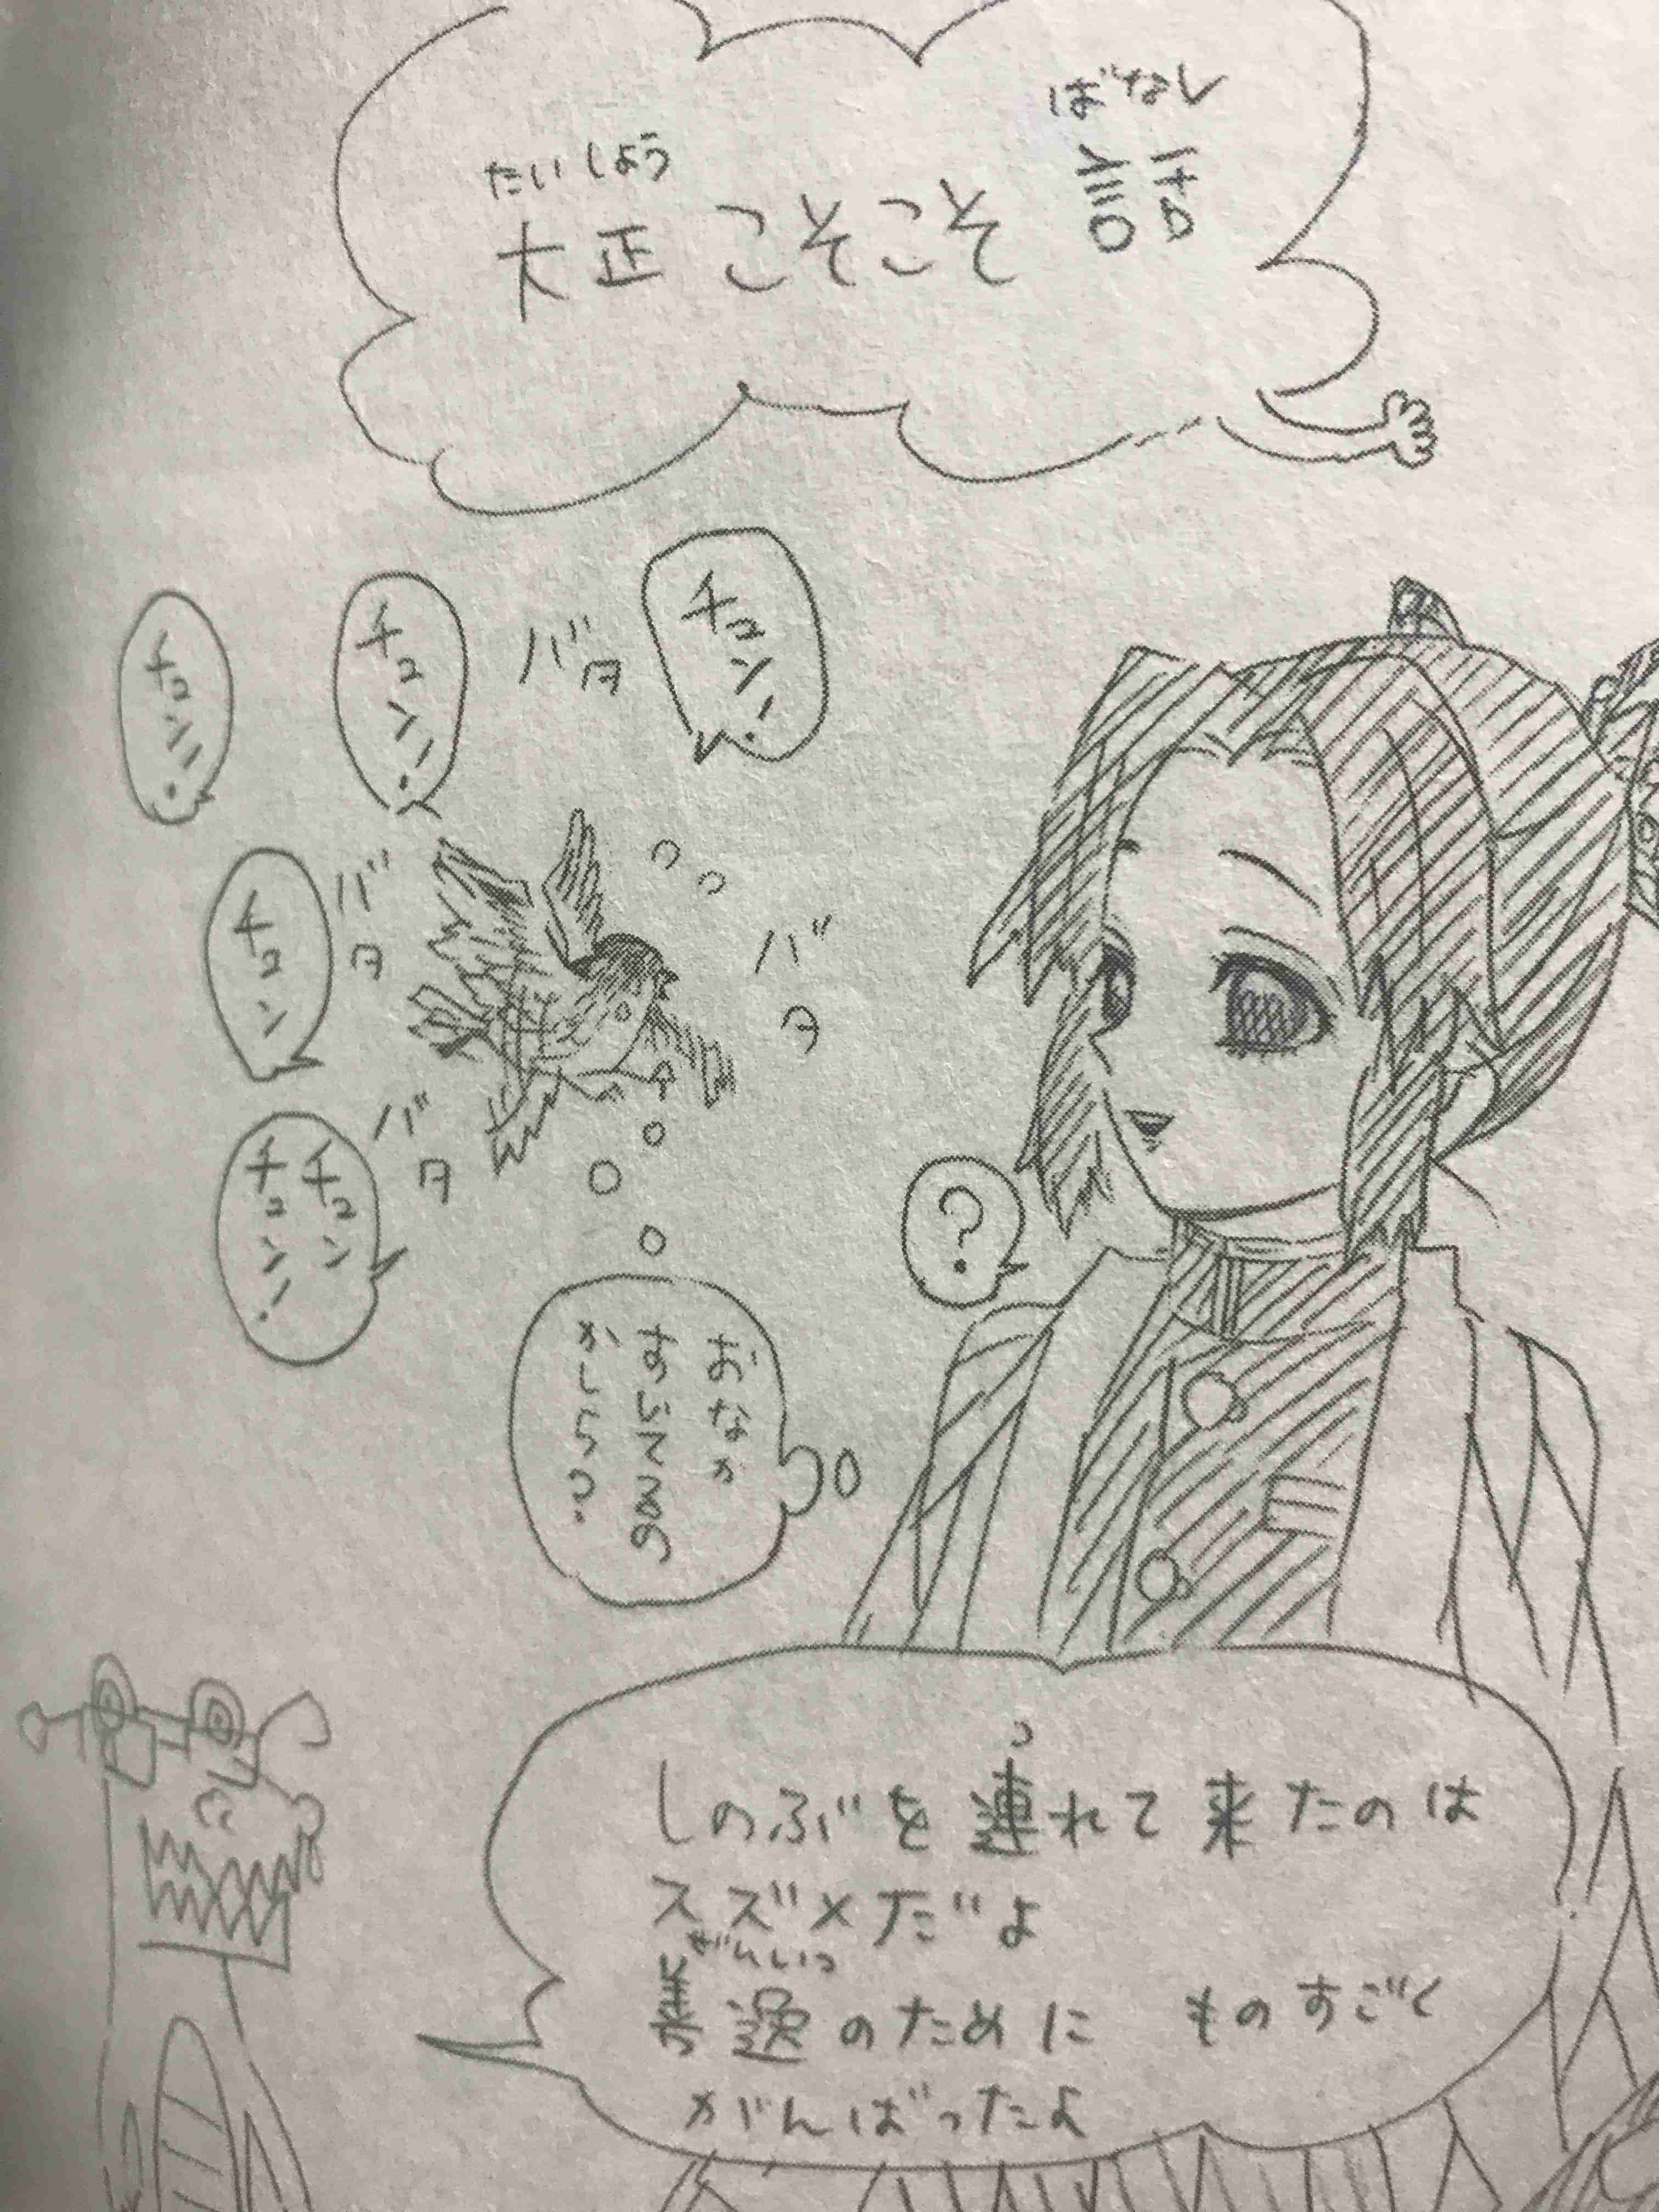 たいしょう ばなし
大正こそこそ話
チュン!
バタ
チュン!
チュン!
バタ
バタ
チュン
バタ
チュン
チュン!
?
おなか
すいてるの
かしら?
つ
しのぶを連れて来たのは
スズメだよ
ぜんいつ
善逸のために ものすごく
がんばったよ